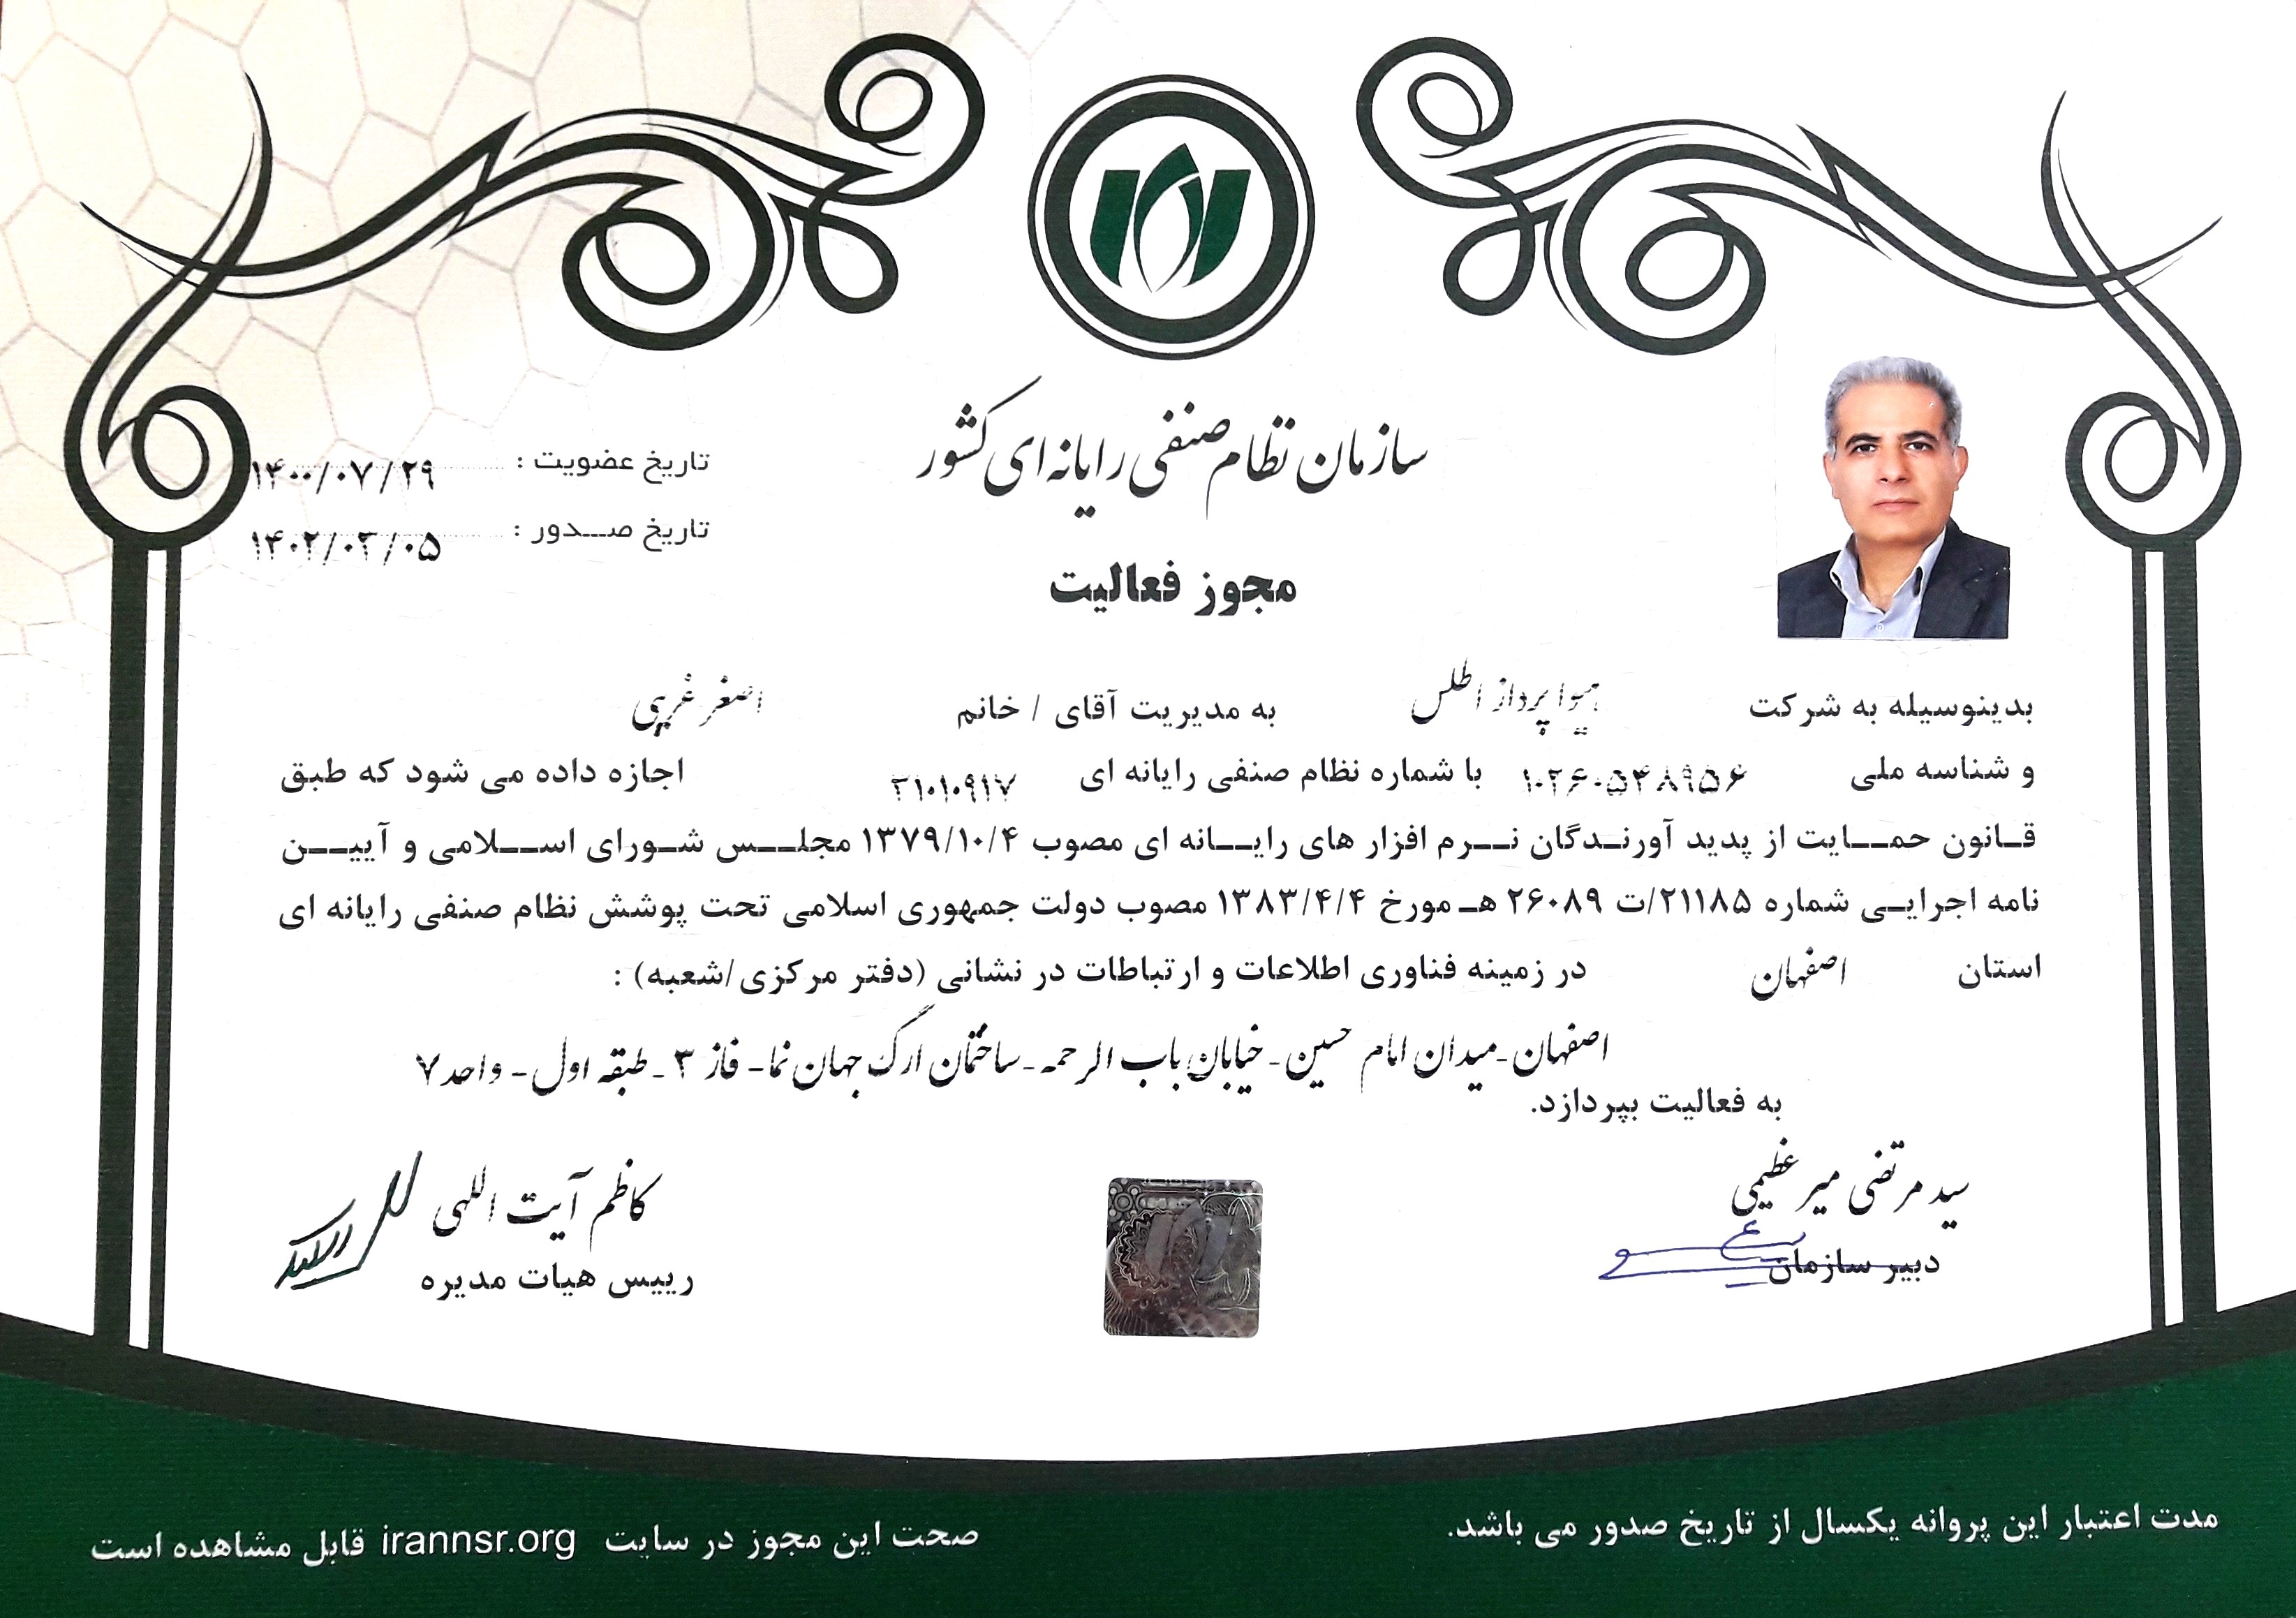 سازمان نظام صنفی رایانه ای کشور
تاریخ عضویت : ۱۴۰۰/۰۷/۲۹
تاریخ صـــدور : ۱۴۰۲/۰۳/۰۵
مجوز فعالیت
بدینوسیله به شرکت هیوا پرداز اطلس به مدیریت آقای / خانم اصغر غریبی
و شناسه ملی ۱۰۲۶۰۵۴۸۹۵۶ با شماره نظام صنفی رایانه ای ۳۱۰۱۰۹۱۷ اجازه داده می شود که طبق
قــانون حمـــایت از پدید آورنــدگان نـــرم افزار های رایـــانه ای مصوب ۱۳۷۹/۱۰/۴ مجلـــس شــورای اســـلامی و آییـــن
نامه اجرایــی شماره ۲۱۱۸۵/ت ۲۶۰۸۹ هـ مورخ ۱۳۸۳/۴/۴ مصوب دولت جمهوری اسلامی تحت پوشش نظام صنفی رایانه ای
استان اصفهان در زمینه فناوری اطلاعات و ارتباطات در نشانی (دفتر مرکزی/شعبه) :
اصفهان-میدان امام حسین- خیابان باب الرحمه-ساختمان ارگ جهان نما- فاز ۳ -طبقه اول- واحد ۷
به فعالیت بپردازد.
سید مرتضی میرعظیمی
دبیر سازمان
کاظم آیت اللهی
رییس هیات مدیره
مدت اعتبار این پروانه یکسال از تاریخ صدور می باشد.
صحت این مجوز در سایت irannsr.org قابل مشاهده است